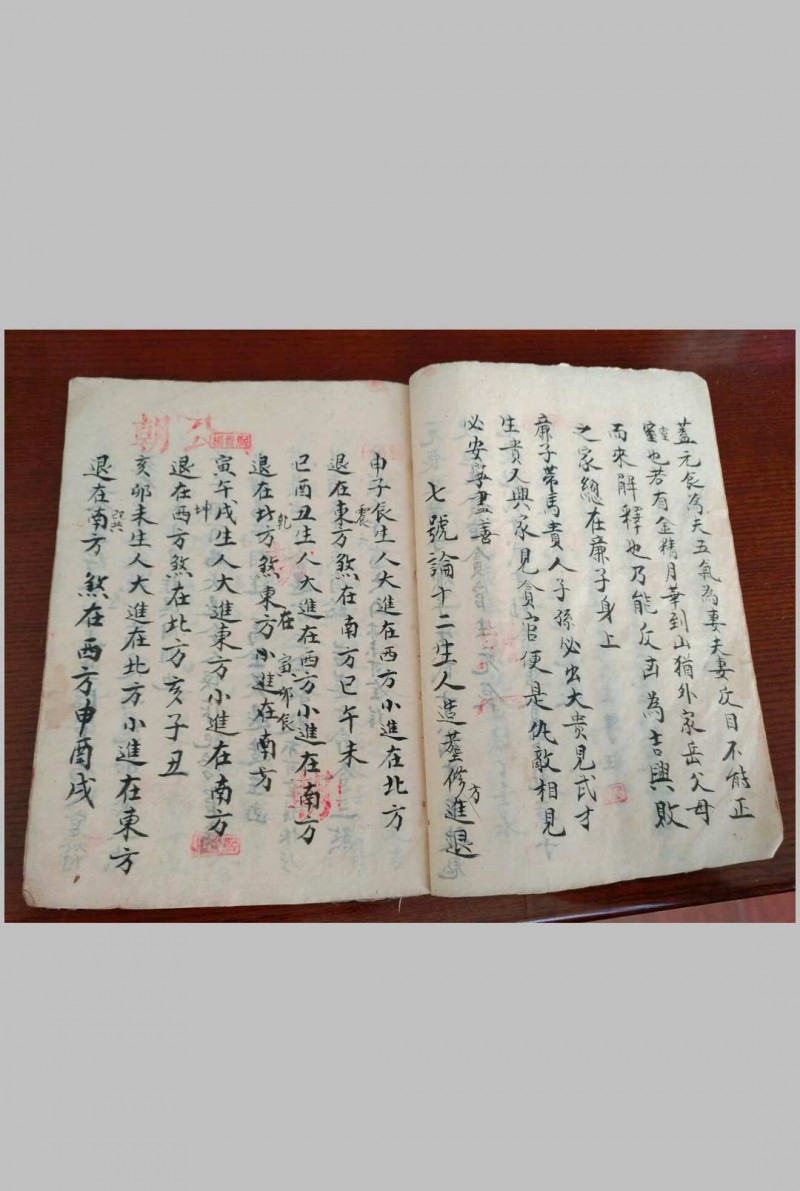 蓋元辰為夫五氣為妻夫妻反目不能正
室也若有金精月華到山猶外家岳父母
而來解釋也乃能反凶為吉興敗
之家總在廉子身上
廉子帶馬貴人子孫必出大貴見武才
生貴人興家見貪官便是仇敵相見
必安寧盡善
七號論十二生人造塟修方進退
申子辰生人大進在西方小進在北方
退在東方震煞在南方巳午未
巳酉丑生人大進在西方小進在南方
退在北方乾煞在東方寅卯辰小進在南方
寅午戌生人大進東方小進在南方
退在西方坤煞在北方亥子丑
亥卯未生人大進在北方小進在東方
退在南方煞在西方申酉戌
朝